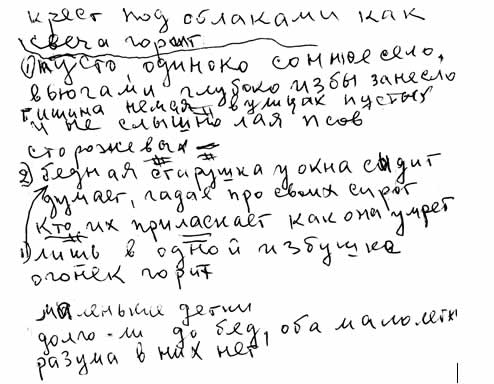 крест под облаками как
свеча горит
1) пусто одиноко сонное село,
вьюгами глубоко избы занесло
тишина немая в улицах пустых
и не слышно лая псов
сторожевых
2) бедная старушка у окна сидит
думает, гадая про своих сирот
кто их приласкает как она умрет
1) лишь в одной избушке
огонек горит
маленькие детки
долго-ли до бед, оба малолетки
разума в них нет